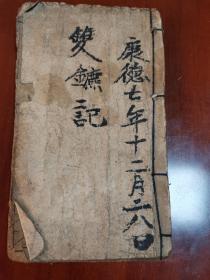 康德七年十二月二八日
雙鑣記